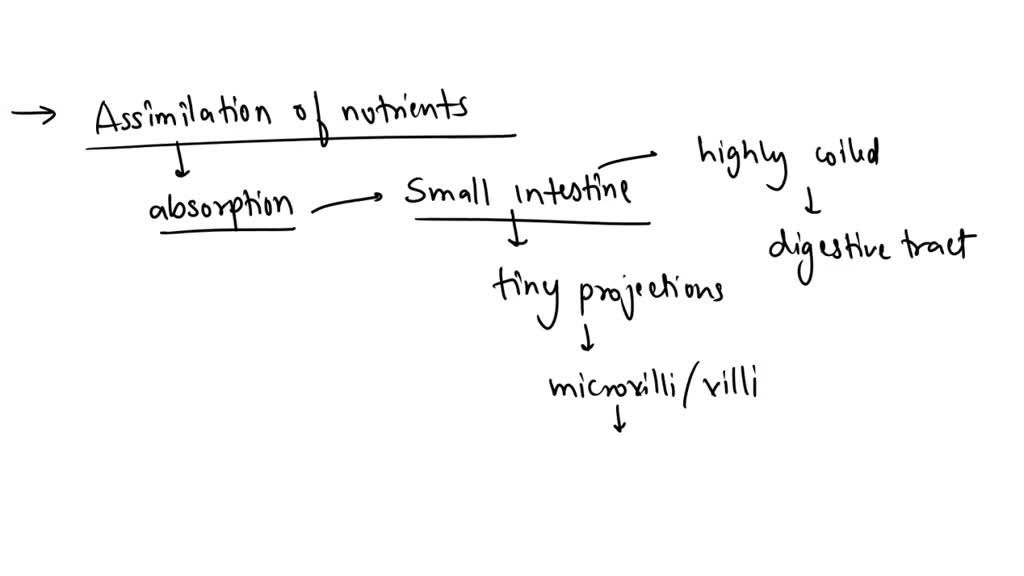 → Assimilation of nutrients
↓
absorption → Small intestine → highly coiled
↓
digestive tract
↓
tiny projections
↓
microvilli/villi
↓